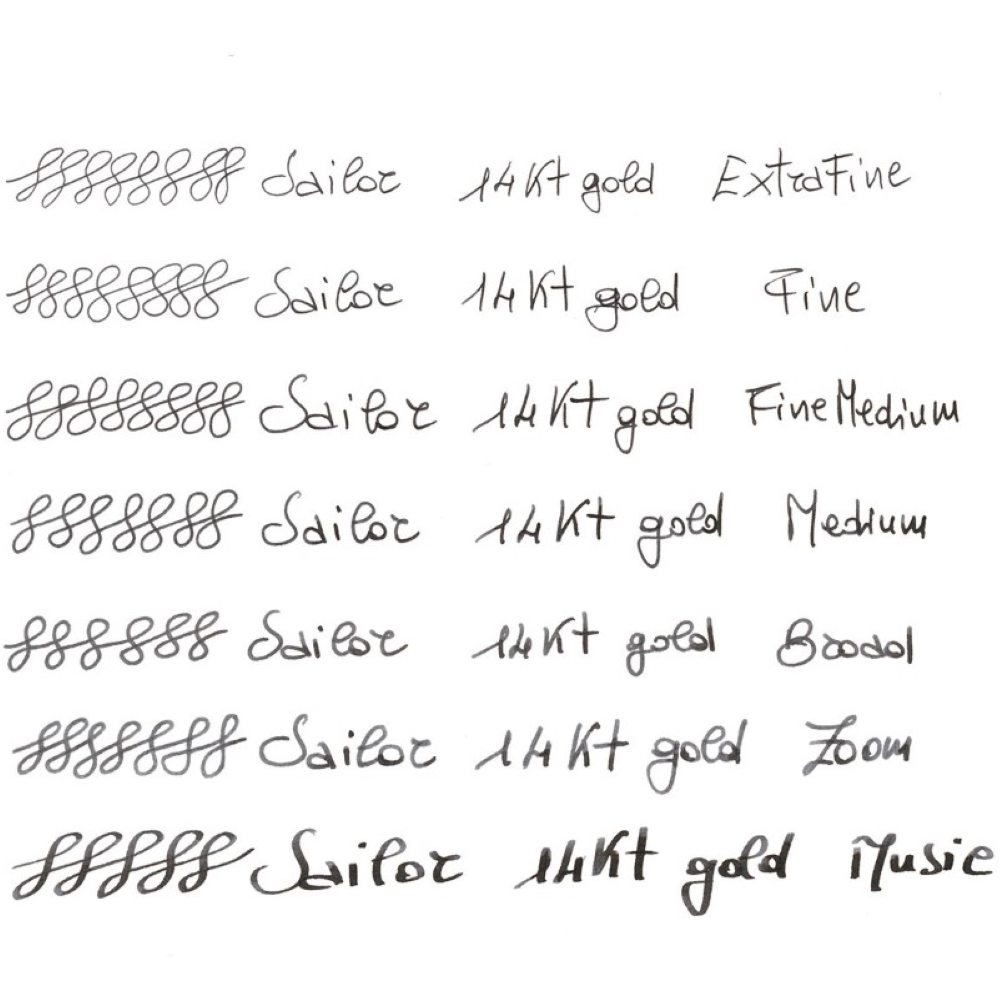 Sailor 14Kt gold ExtraFine
Sailor 14Kt gold Fine
Sailor 14Kt gold FineMedium
Sailor 14Kt gold Medium
Sailor 14Kt gold Broad
Sailor 14Kt gold Zoom
Sailor 14Kt gold Music